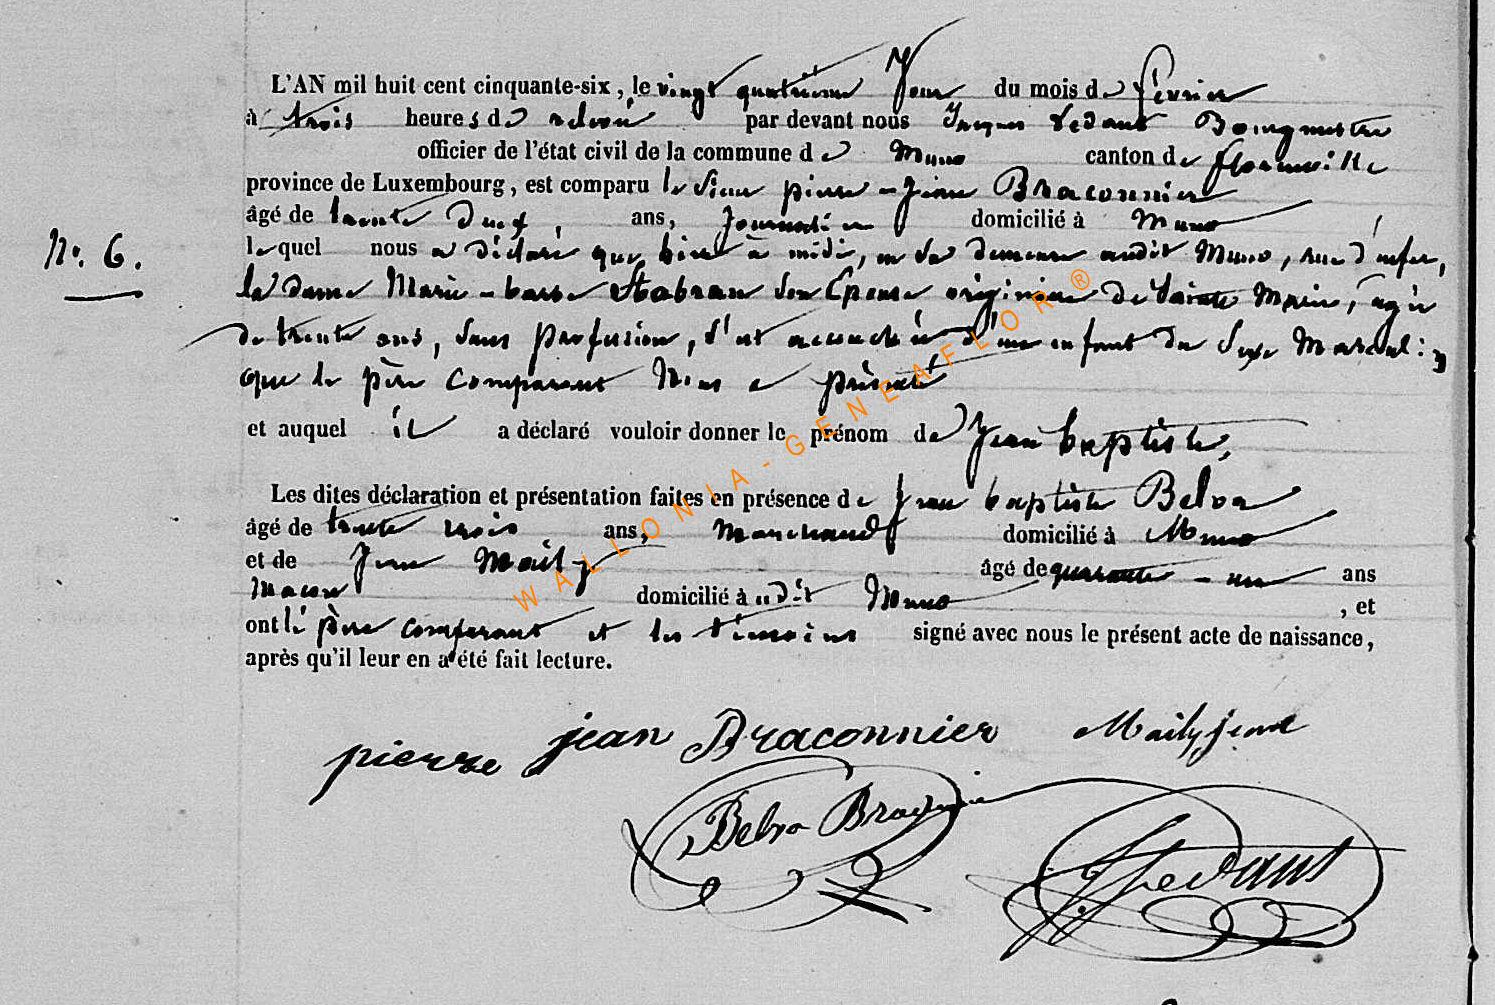 L'AN mil huit cent cinquante-six, le vingt quatrième Jour du mois de février
à trois heures de relevée par devant nous Jacques Ledant Bourgmestre
officier de l'état civil de la commune de Muno canton de florenville
province de Luxembourg, est comparu le Sieur pierre-jean Braconnier
âgé de trente deux ans, Journalier domicilié à Muno
lequel nous a déclaré que hier à midi, en sa demeure audit Muno, rue d'enfer,
N°. 6.
la dame Marie-barbe Habran son Epouse originaire de Sainte Marie, agée
de trente ans, sans profession, s'est accouchée d'un enfant du sexe Masculin
que le père comparant Nous a présenté
et auquel il a déclaré vouloir donner le prénom de Jean baptiste,
Les dites déclaration et présentation faites en présence de Jean baptiste Belva
âgé de trente trois ans, Marchand domicilié à Muno
et de Jean Maily âgé de quarante-un ans
Macon domicilié à udit Muno, et
ont le père comparant et les témoins signé avec nous le présent acte de naissance,
après qu'il leur en a été fait lecture.
pierre jean Braconnier Maily jean
Belva
J Ledant
WALLONIA-GENEAFLOR®